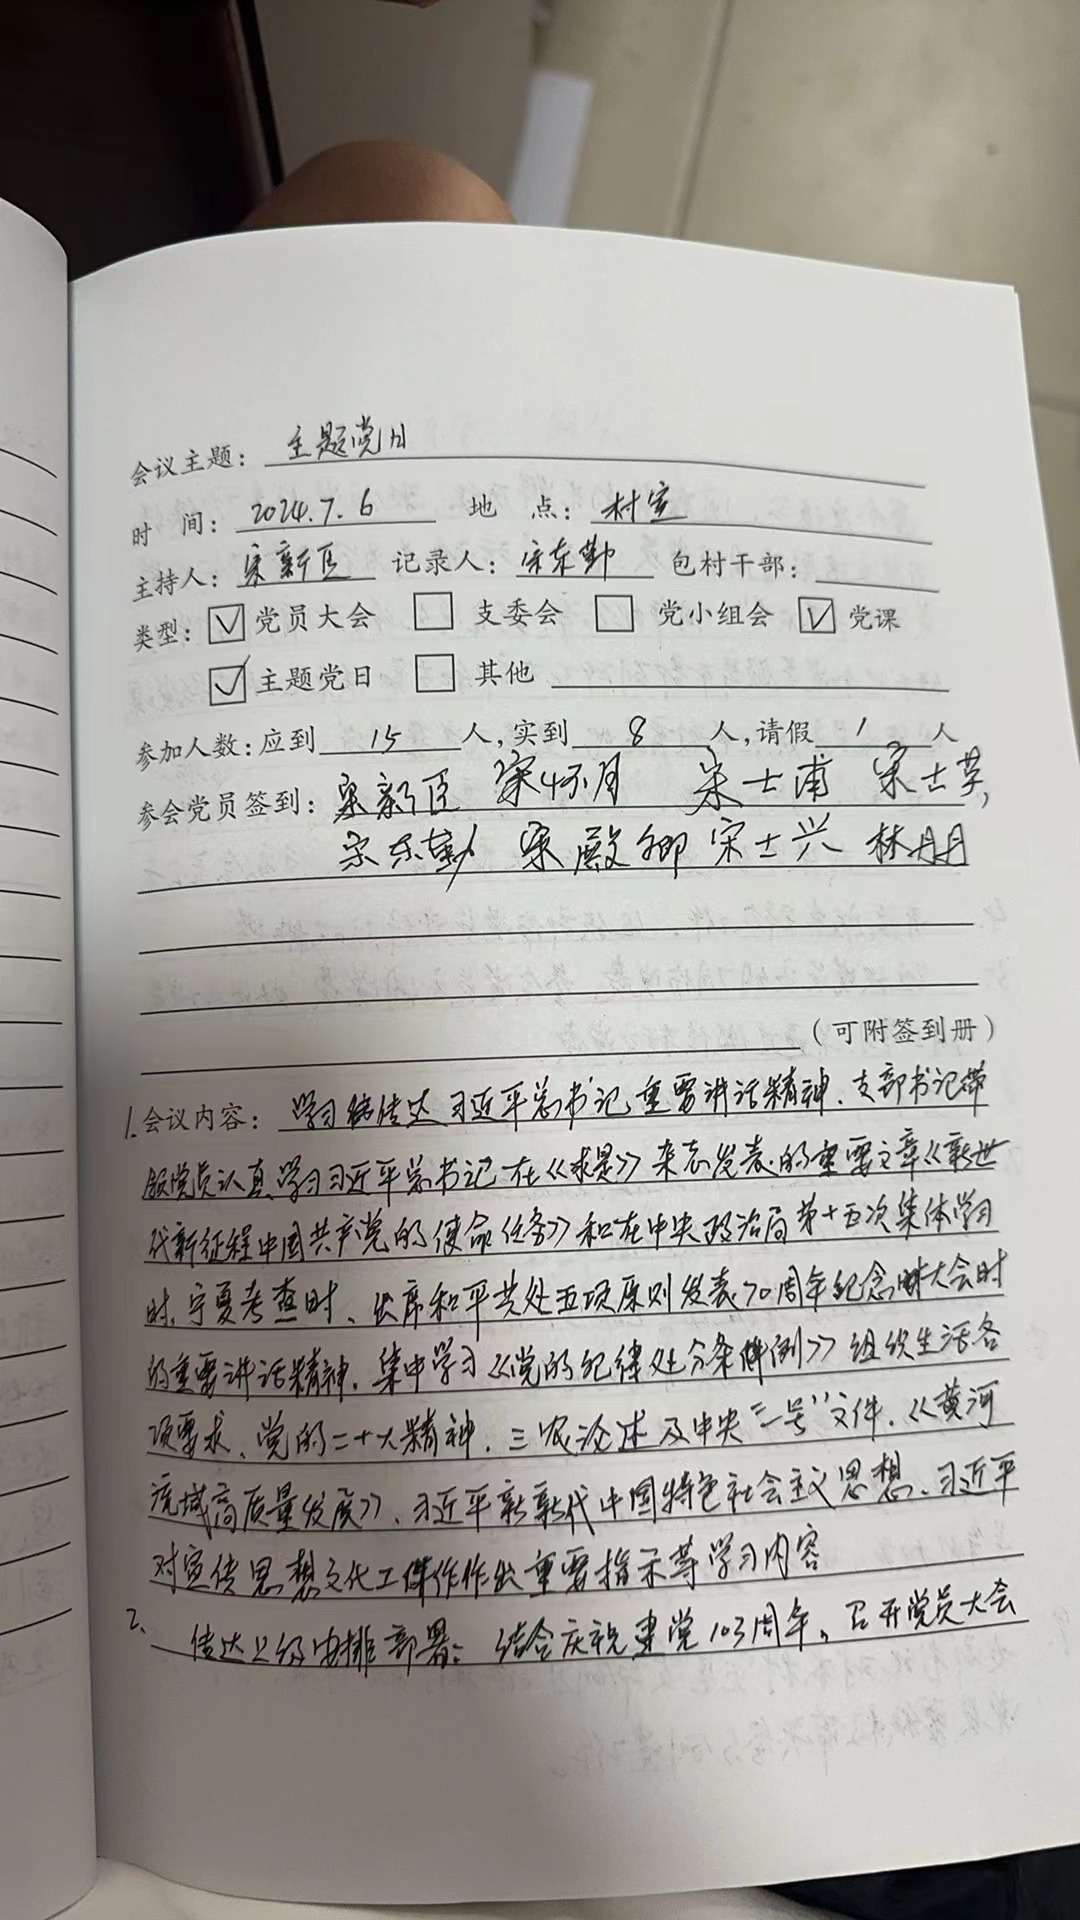 会议主题：主题党日
时 间：2024.7.6 地 点：村室
主持人：宋新臣 记录人：宋东勤 包村干部：
类型：☑党员大会 □支委会 □党小组会 ☑党课
☑主题党日 □其他
参加人数：应到15人，实到8人，请假1人
参会党员签到：宋新臣 宋怀月 宋士甫 宋士英，
宋东勤 宋殿卿 宋士兴 林丹丹
（可附签到册）
1.会议内容：学习传达习近平总书记重要讲话精神、支部书记带
领党员认真学习习近平总书记在《求是》杂志发表的重要文章《新世
代新征程中国共产党的使命任务》和在中央政治局第十五次集体学习
时、宁夏考查时、出席和平共处五项原则发表70周年纪念大会时
的重要讲话精神，集中学习《党的纪律处分条例》组织生活各
项要求、党的二十大精神、三农论述及中央“一号”文件、《黄河
流域高质量发展》、习近平新新代中国特色社会主义思想、习近平
对宣传思想文化工作作出重要指示等学习内容
2、传达上级安排部署：结合庆祝建党103周年，召开党员大会